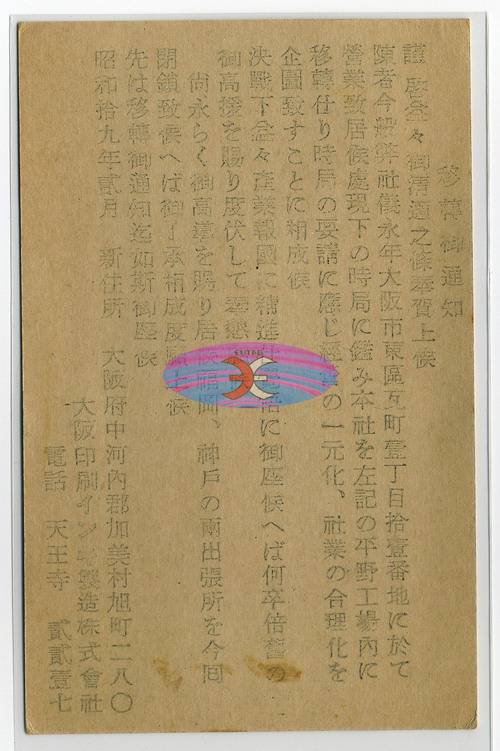 移轉御通知
謹啓益々御淸適之條奉賀上候
陳者今般弊社儀永年大阪市東區瓦町壹丁目拾壹番地に於て
營業致居候處現下の時局に鑑み本社を左記の平野工場內に
移轉仕り時局の要請に應じ經 の一元化、社業の合理化を
企圖致すことに相成候
決戰下益々產業報國に精進 に御座候へば何卒倍舊の
御高援を賜り度伏して奉懇
尙永らく御高慕を賜り居候福岡、神戶の兩出張所を今回
閉鎖致候へば御了承相成度 候
先は移轉御通知迄如斯御座候
昭和拾九年貳月 新住所 大阪府中河內郡加美村旭町二八〇
大阪印刷インキ製造株式會社
電話 天王寺 貳貳壹七